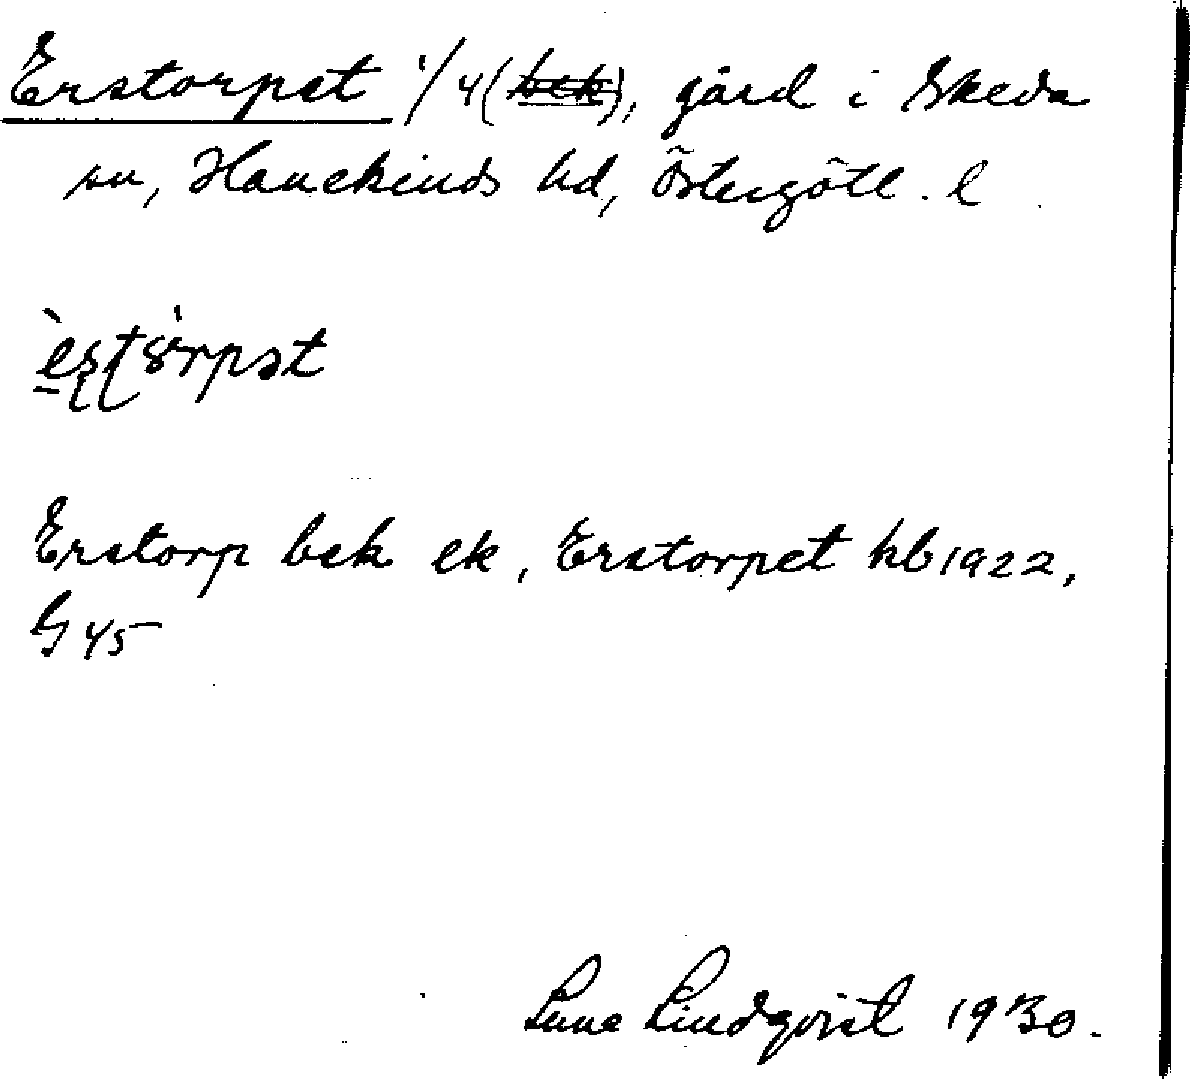 Erstorpet 1/4 (bek), gård i Skeda
sn, Hanekinds hd, Östergötl. l
Erstorp bek ek, Erstorpet hb 1922,
G 45
Sune Lindqvist 1930.